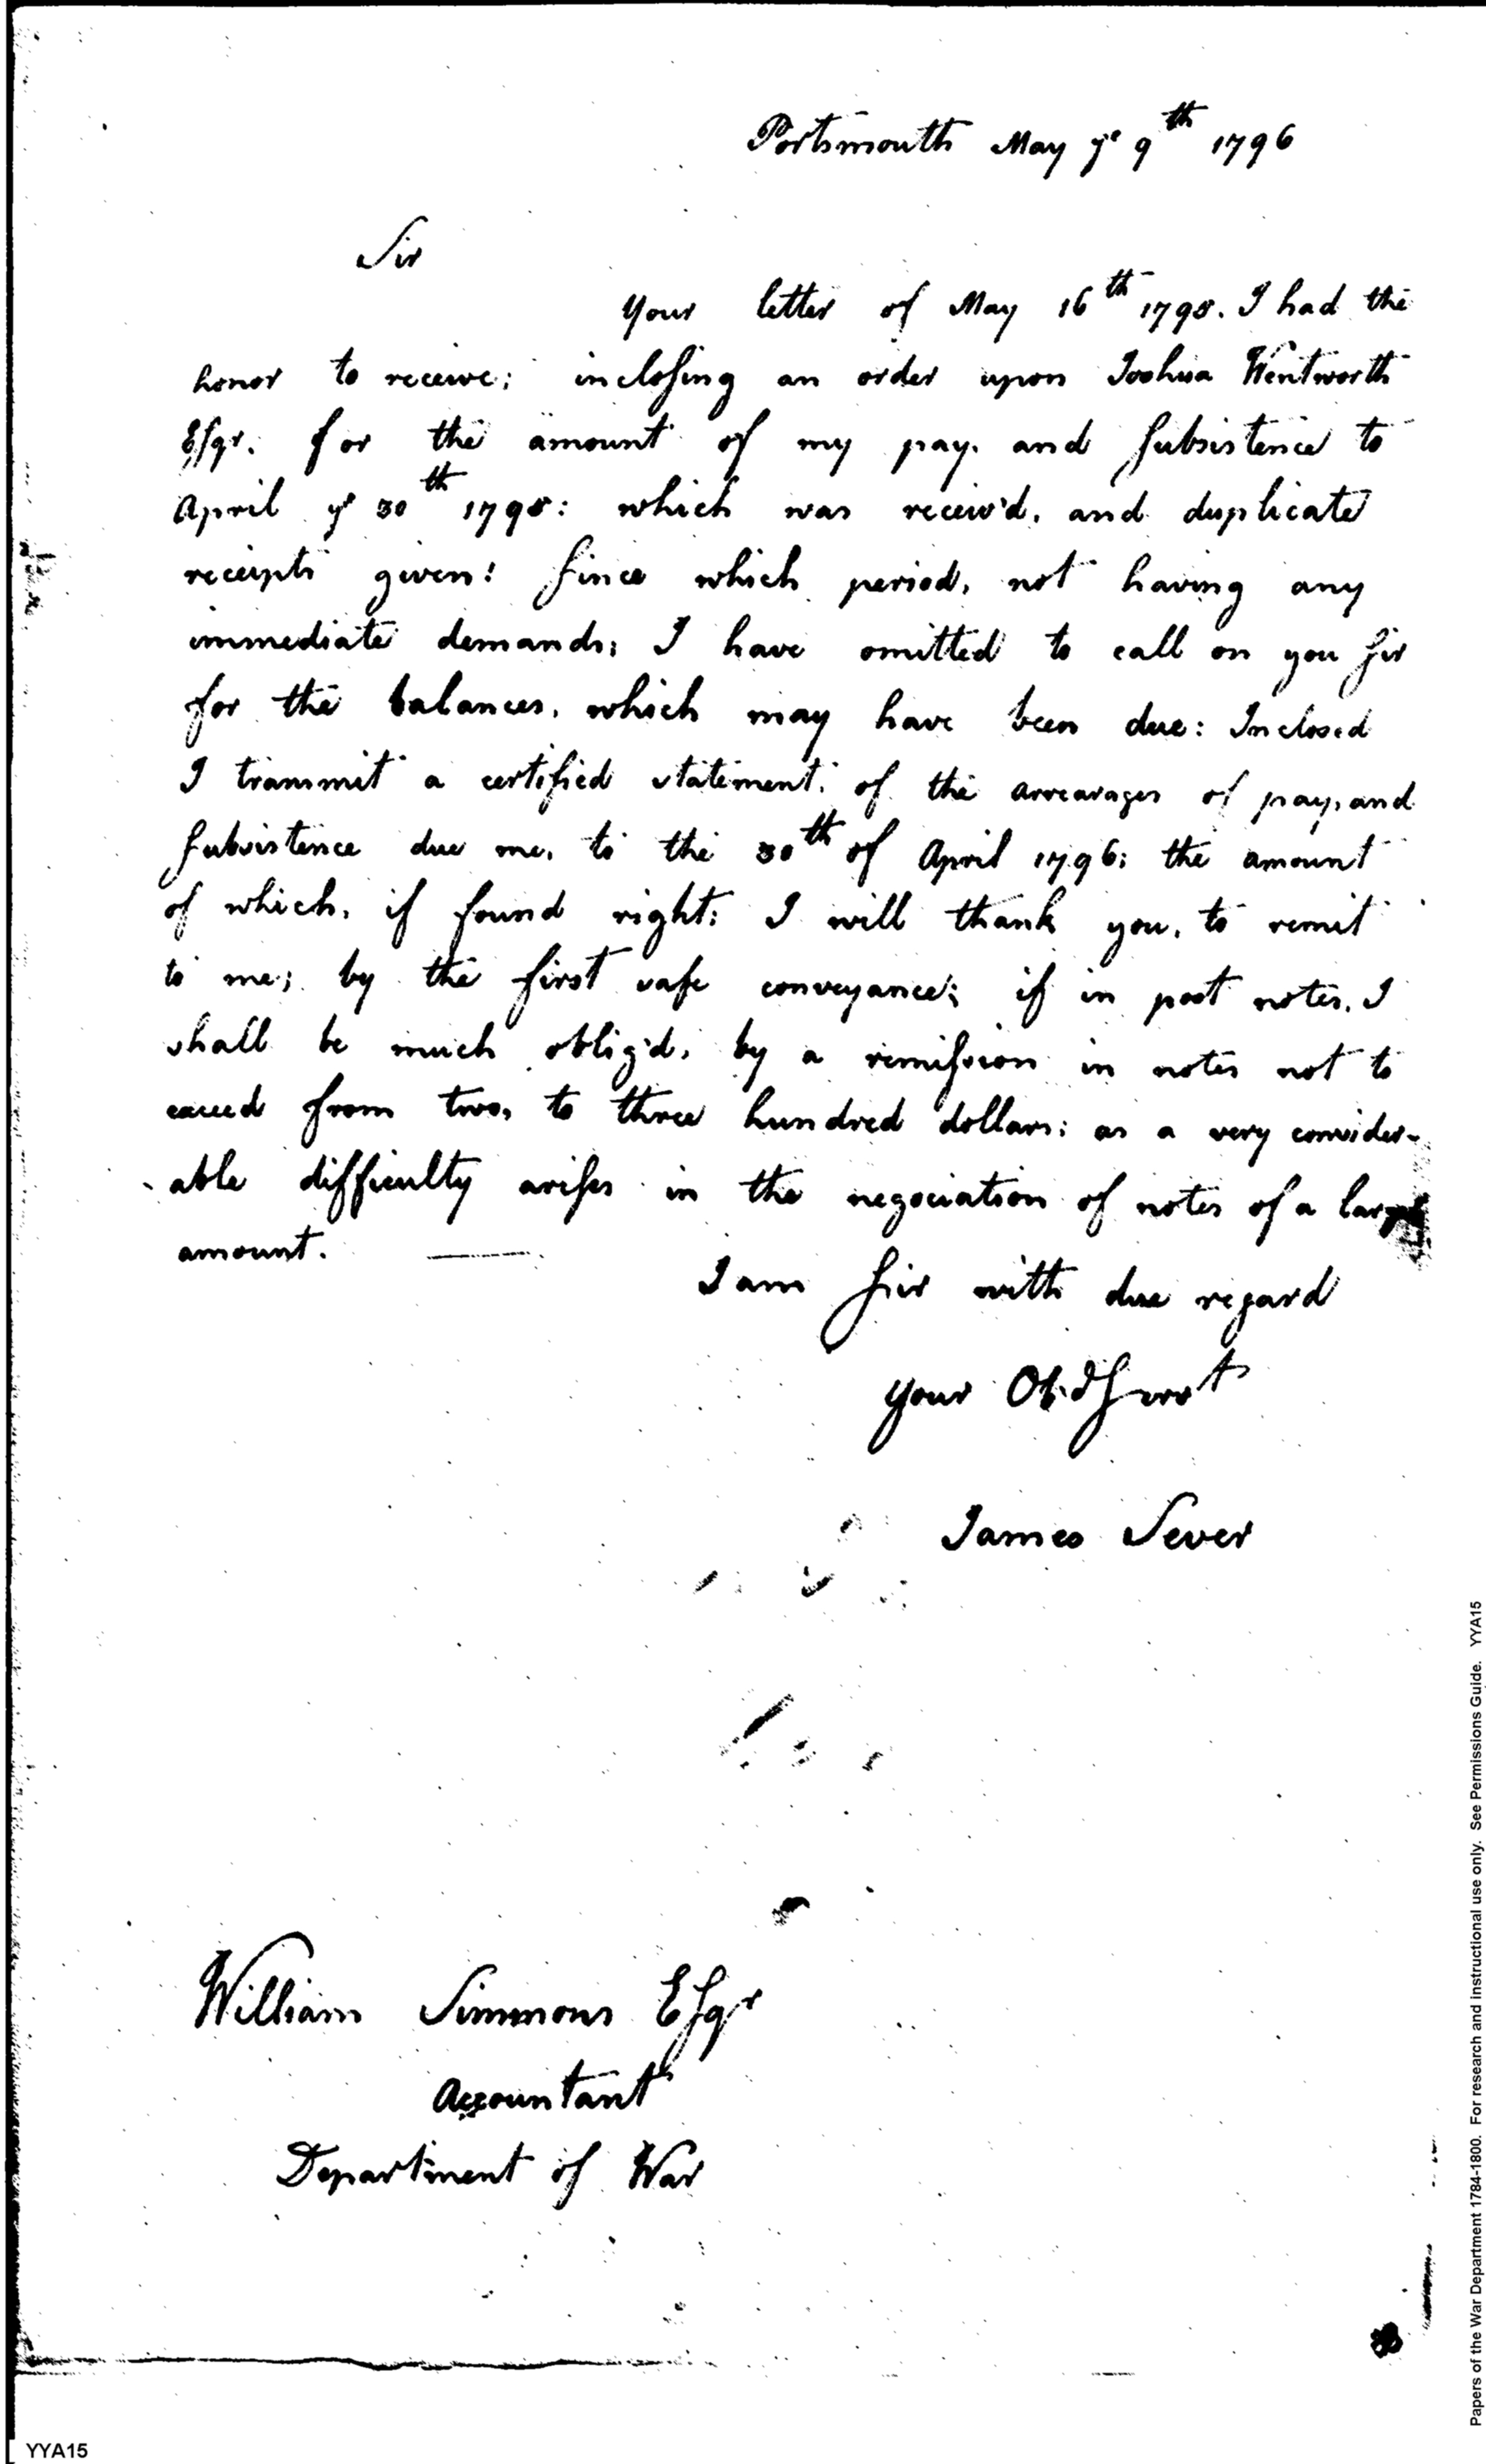 Portsmouth May ye 9th 1796
Sir
Your letter of May 16th 1795. I had the
honor to receive; inclosing an order upon Joshua Wentworth
Esqr. for the amount of my pay. and subsistence to
April ye 30th 1795: which was receiv'd, and duplicate
receipts given: since which period, not having any
immediate demands; I have omitted to call on you sir
for the balances, which may have been due: Inclosed
I transmit a certified statement, of the arrearages of pay, and
subsistence due me, to the 30th of April 1796; the amount
of which, if found right; I will thank you, to remit
to me; by the first safe conveyance; if in post notes, I
shall be much oblig'd, by a remission in notes not to
exceed from two, to three hundred dollars; as a very consider-
able difficulty arises in the negociation of notes of a large
amount.
I am sir with due regard
your Obd Servt
James Sever
William Simmons Esqr
Accountant
Department of War
Papers of the War Department 1784-1800. For research and instructional use only. See Permissions Guide. YYA15
YYA15